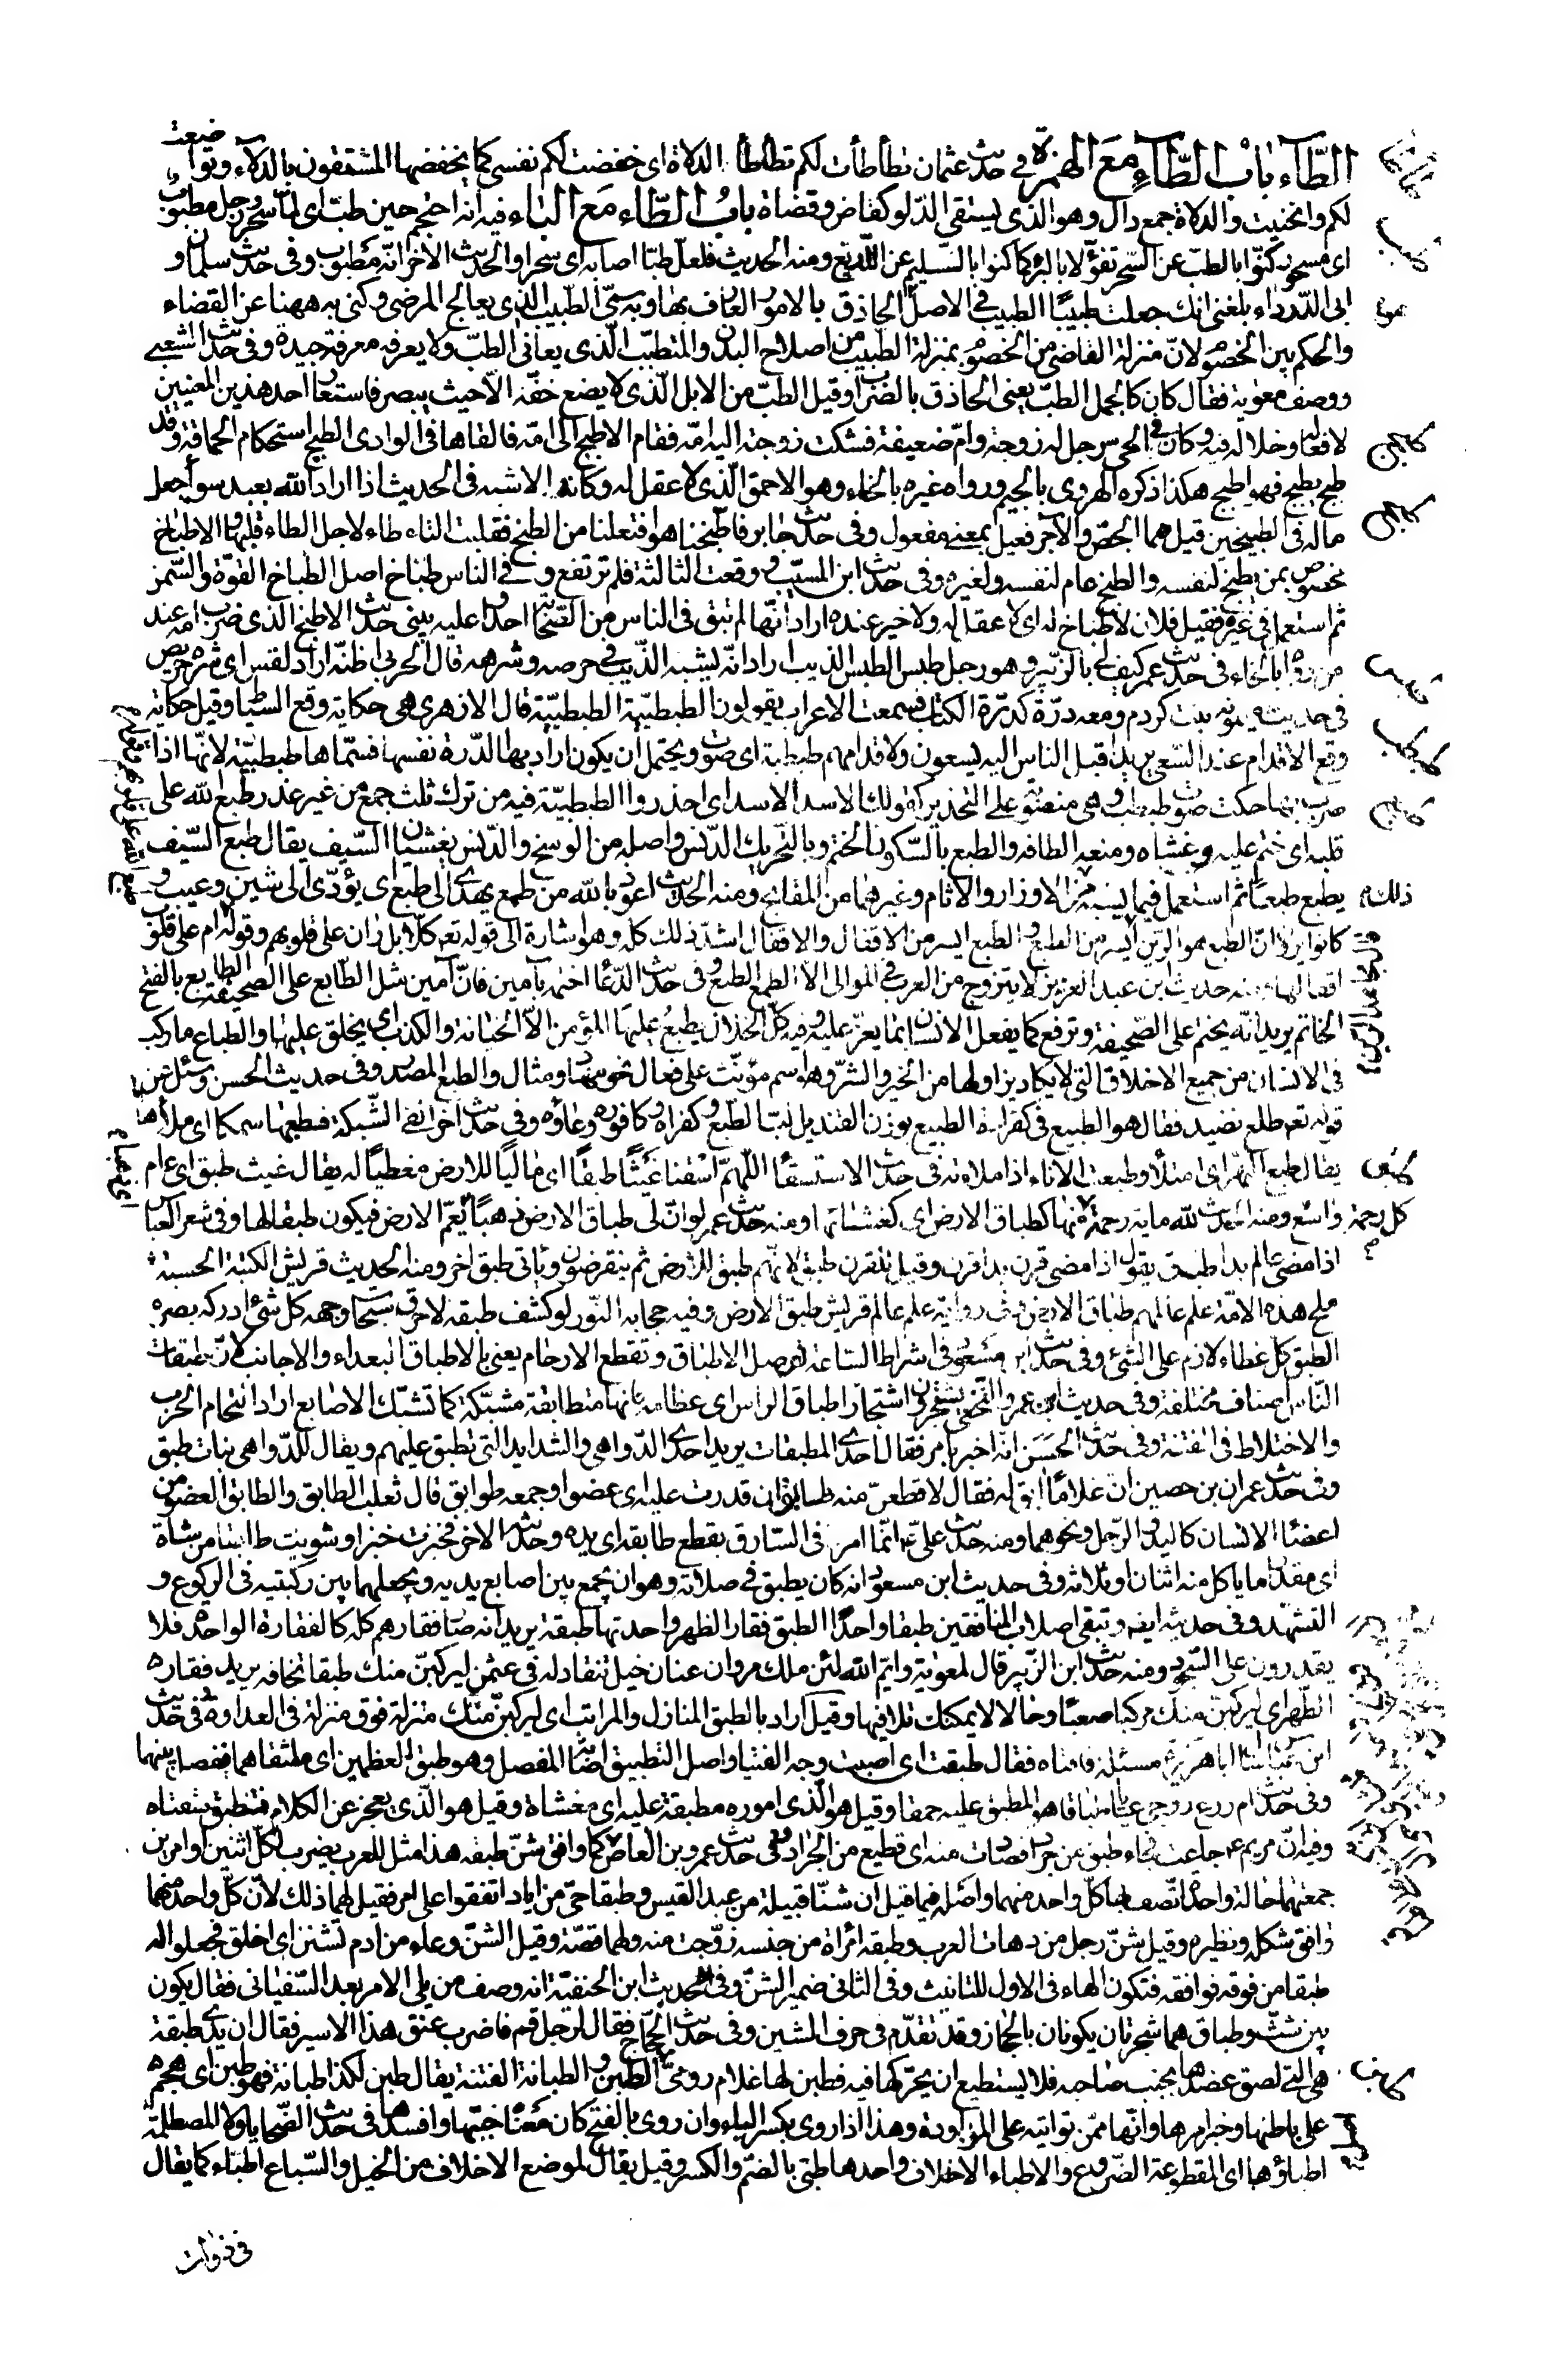 الطّآء بابُ الطّآءِ مَعَ الهمزة في حديث عثمان تطأطأت لكم تطأطأ الدلاة اى خفضت لكم نفسى كما يخفضها المستقون بالدلاء وتواضعت
لكم وانحنيت والدلاة جمع دال وهو الذى يستقى الدّلو كقاض وقضاة بابُ الطّاء مَعَ الباء فيه انه احتجم حين طبّ اى لما سحر ورجل مطبوب
اى مسحور كنّوا بالطب عن السّحر تفوّلا بالبُرْء كما كنوا بالسّليم عن اللّديغ ومنه الحديث فلعلّ طبّا اصابه اى سحرا والحديث الاخر انّه مطبوب وفى حديث سلمان و
ابى الدّرداء بلغنى انك جعلت طبيبًا الطبيب فى الاصل الحاذق بالامور العارف بها وبه سمّى الطّبيب الذى يعالج المرضى وكنى به ههنا عن القضاء
والحكم بين الخصوم لانّ منزلة القاضى من الخصوم بمنزلة الطبيب من اصلاح البدن والمتطبّب الّذى يعانى الطبّ ولا يعرفه معرفة جيدة وفى حديث الشعبى
ووصف معوية فقال كان كالجمل الطبّ يعنى الحاذق بالضراب وقيل الطبّ من الابل الّذى لا يضع خفّه الّا حيث يبصر فاستعار احد هذين المعنيين
لافعاله وخلاله فيه وكان فى الحى رجل له زوجة وامّ ضعيفة فشكت زوجته اليه امّه فقام الاطبج الى امّه فالقاها فى الوادى الطبج استحكام الحماقة وقد
طبج يطبج فهو اطبج هكذا ذكره الهروى بالجيم ورواه غيره بالخاء وهو الاحمق الّذى لا عقل له وكانه الاشبه فى الحديث اذا اراد الله بعبد سوأ جعل
ماله فى الطبيخين قيل هما الجصّ والآجر فعيل بمعنى مفعول وفى حديث جابر فاطّبخنا هو افتعلنا من الطبخ فقلبت التاء طاء لاجل الطاء قبلها والاطباخ
مخصوص بمن يطبخ لنفسه والطبخ عام لنفسه ولغيره وفى حديث ابن المسيّب ووقعت الثالثة فلم ترتفع وفى الناس طباخ اصل الطباخ القوّة والسّمن
ثم استعمل فى غيره فقيل فلان لا طباخ له اى لا عقل له ولا خير عنده اراد انّها لم تبق فى الناس من الصّحابة احدا وعليه يبنى حديث الاطبخ الذى ضرب امّه عند
من رواه بالخاء فى حديث عمر كيف لى بالزّبير وهو رجل طبس الطبس الذيب اراد انّه يشبه الذّيب فى حرصه وشرهه قال الحربى اظنّه اراد لقس اى شره حريص
فى حديث ميمونه بنت كردم ومعه درّة كدرّة الكتّاب فسمعت الاعراب يقولون الطبطبيّة الطبطبيّة قال الازهرى هى حكاية وقع السّياط وقيل حكاية
وقع الاقدام عند السّعى يريد اقبل الناس اليه يسعون ولاقدامهم طبطبة اى صوت ويحتمل ان يكون اراد بها الدّرة نفسها فسمّاها طبطبيّة لانّها اذا
ضرب بها حكت صوت طب طب وهى منصوبة على التحذير كقولك الاسد الاسد اى احذروا الطبطبيّة فيه من ترك ثلث جمع من غير عذر طبع الله على
قلبه اى ختم عليه وغشاه ومنعه الطافه والطبع بالسّكون الختم وبالتّحريك الدّنس واصله من الوسخ والدّنس يغشيان السّيف يقال طبع السّيف
يطبع طبعًا ثم استعمل فيما يشبه من الاوزار والاثام وغيرهما من المقابح ومنه الحديث اعوذ بالله من طمع يهدى الى طبع اى يؤدّى الى شين وعيب و
كانوا يرون انّ الطبع هو الرّين ايسر من الطبع والطبع ايسر من الاقفال والاقفال اشدّ ذلك كله وهو اشارة الى قوله تعالى كلا بل ران على قلوبهم وقوله ام على قلوب
اقفالها ومنه حديث ابن عبد العزيز لا يتزوج من العرب فى الموالى الا الطمع الطبع وفى حديث الدّعا اختمه بآمين فانّ آمين مثل الطّابع على الصّحيفة الطّابع بالفتح
الخاتم يريد انّه يختم على الصّحيفة وترفع كما يفعل الانسان بما يعزّ عليه وفيه كلّ الخلال يطبعُ عليها المؤمن الّا الخيانة والكذب اى يخلق عليها والطباع ما ركب
فى الانسان من جميع الاخلاق التى لا يكاد يزاولها من الخير والشرّ وهو اسم مؤنّث على فعال نحو مهاد ومثال والطبع المصدر وفى حديث الحسن وسئل عن
قوله تعالى طلع نضيد فقال هو الطبيع فى كفراه الطبيع بوزن القنديل لبّ الطلع وكفراه وكافوره وعاؤه وفى حديث آخر القى الشّبكة فطبعها سمكا اى ملأها
يقال طبع النهر اى امتلأ وطبعت الاناء اذا ملاته فى حديث الاستسقا اللّهمّ اسقنا غيثًا طبقًا اى ماليًا للارض مغطيًا له يقال غيث طبق اى عام
واسع ومنه الحديث لله ماية رحمة كل رحمة منها كطباق الارض اى كغشائها ومنه حديث عمر لو انّ لى طباق الارض ذهبًا اى يعمّ الارض فيكون طبقا لها وفى شعر العباس
اذا مضى عالم بدا طبق يقول اذا مضى قرن بدا قرن وقيل للقرن طبق لانّهم طبق للارض ثم ينقرضون ويأتى طبق اخر ومنه الحديث قريش الكتبة الحسبة
ملح هذه الامّة علم عالمهم طباق الارض وفى رواية علم عالم قريش طبق الارض وفيه حجابه النّور لو كشف طبقه لاحرق سبحات وجهه كل شئ ادركه بصره
الطبق كلّ غطاء لازم على الشئ وفى حديث ابن مسعود فى اشراط السّاعة توصل الاطباق وتقطع الارحام يعنى بالاطباق البعداء والاجانب لانّ طبقات
النّاس اصناف مختلفة وفى حديث ابى عمرو النّخعى يشتجرون اشتجار اطباق الراس اى عظامه فانها متطابقة مشبّكة كما تشبّك الاصابع اراد التحام الحرب
والاختلاط فى الفتنة وفى حديث الحَسَن انّه اخبر بأمر فقال احدى المطبقات يريد احدى الدّواهى والشدايد التى تطبق عليهم ويقال للدّواهى بنات طبق
وفى حديث عمران بن حصين ان غلامًا ابق له فقال لاقطعنّ منه طابقا ان قدرت عليه اى عضوا وجمعه طوابق قال ثعلب الطابق والطابق العضو من
اعضاء الانسان كاليد والرّجل ونحوهما ومنه حديث علىّ ع انّما امر فى السّارق بقطع طابقه اى يده وحديثه الاخر فخبزت خبزا وشويت طابقا من شاة
اى مقدار ما يأكل منه اثنان او ثلاثه وفى حديث ابن مسعود انه كان يطبق فى صلاته وهو ان يجمع بين اصابع يديه ويجعلهما بين ركبتيه فى الركوع و
التشهّد وفى حديثه ايضا وتبقى اصلاب المنافقين طبقا واحدًا الطبق فقار الظهر واحدتها طبقة يريد انه صار فقارهم كله كالفقارة الواحدة فلا
يقدرون على السّجود ومنه حديث ابن الزّبير قال لمعوية وايم الله لئن ملك مروان عنان خيل تنقاد له فى عثمن ليركبنّ منك طبقا تخافه يريد فقاره
الظّهر اى ليركبنّ منك مركبا صعبًا وحالا لا يمكنك تلافيها وقيل اراد بالطبق المنازل والمراتب اى ليركبنّ منك منزلة فوق منزلة فى العداوة وفى حديث
ابن عباس سأل ابا هريرة مسئلة فافتاه فقال طبقت اى اصبت وجه الفتيا واصل التّطبيق اصابة المفصل وهو طبق العظمين اى ملتقاهما فيفصل بينهما
وفى حديث ام زرع زوجى عياياء طباقاء هو المطبق عليه حمقا وقيل هو الّذى اموره مطبقة عليه اى مغشاة وقيل هو الّذى يعجز عن الكلام فتنطبق شفتاه
وفيه انّ مريم ع جاعت فجاء طبق من جراد فصادت منه اى قطيع من الجراد وفى حديث عمرو بن العاص كما وافق شنّ طبقه هذا مثل للعرب يضرب لكلّ اثنين او امرين
جمعتهما حالة واحدة اتّصف بها كلّ واحد منهما واصله فيما قيل ان شنّا قبيلة من عبد القيس وطبقا حىّ من اياد اتفقوا على امر فقيل لهما ذلك لانّ كلّ واحد منهما
وافق شكله ونظيره وقيل شنّ رجل من دهات العرب وطبقه امْرأة من جنسه زوّجت منه ولهما قصّة وقيل الشنّ وعاء من ادم تشنن اى اخلق فجعلوا له
طبقا من فوقه فوافقه فتكون الهاء فى الاول للتانيث وفى الثانى ضمير الشنّ وفى حديث ابن الحنفيّة انه وصف من يلى الامر بعد السّفيانى فقال يكون
بين شثّ وطباق هما شجرتان يكونان بالحجاز وقد تقدّم فى حرف الشين وفى حديث الحجّاج فقال لرجل قم فاضرب عنق هذا الاسير فقال ان يدى طبقة
هى التى لصق عضدها بجنب صاحبه فلا يستطيع ان يحرّكها فيه فطبن لها غلام رومىّ الطبن والطبانة الفتنة يقال طبن لكذا طبانة فهو طبن اى هجم
على باطنها وخبر امرها وانّها ممّن تواتيه على المراودة وهذا اذا روى بكسر الباء وان روى بالفتح كان معناه خيّبها وافسدها فى حديث الضّحايا ولا المصطلمة
اطباؤها اى المقطوعة الضّروع والاطباء الاخلاف واحدها طبى بالضمّ والكسر وقيل يقال لموضع الاخلاف من الخيل والسّباع اطباء كما يقال
فى ذوات